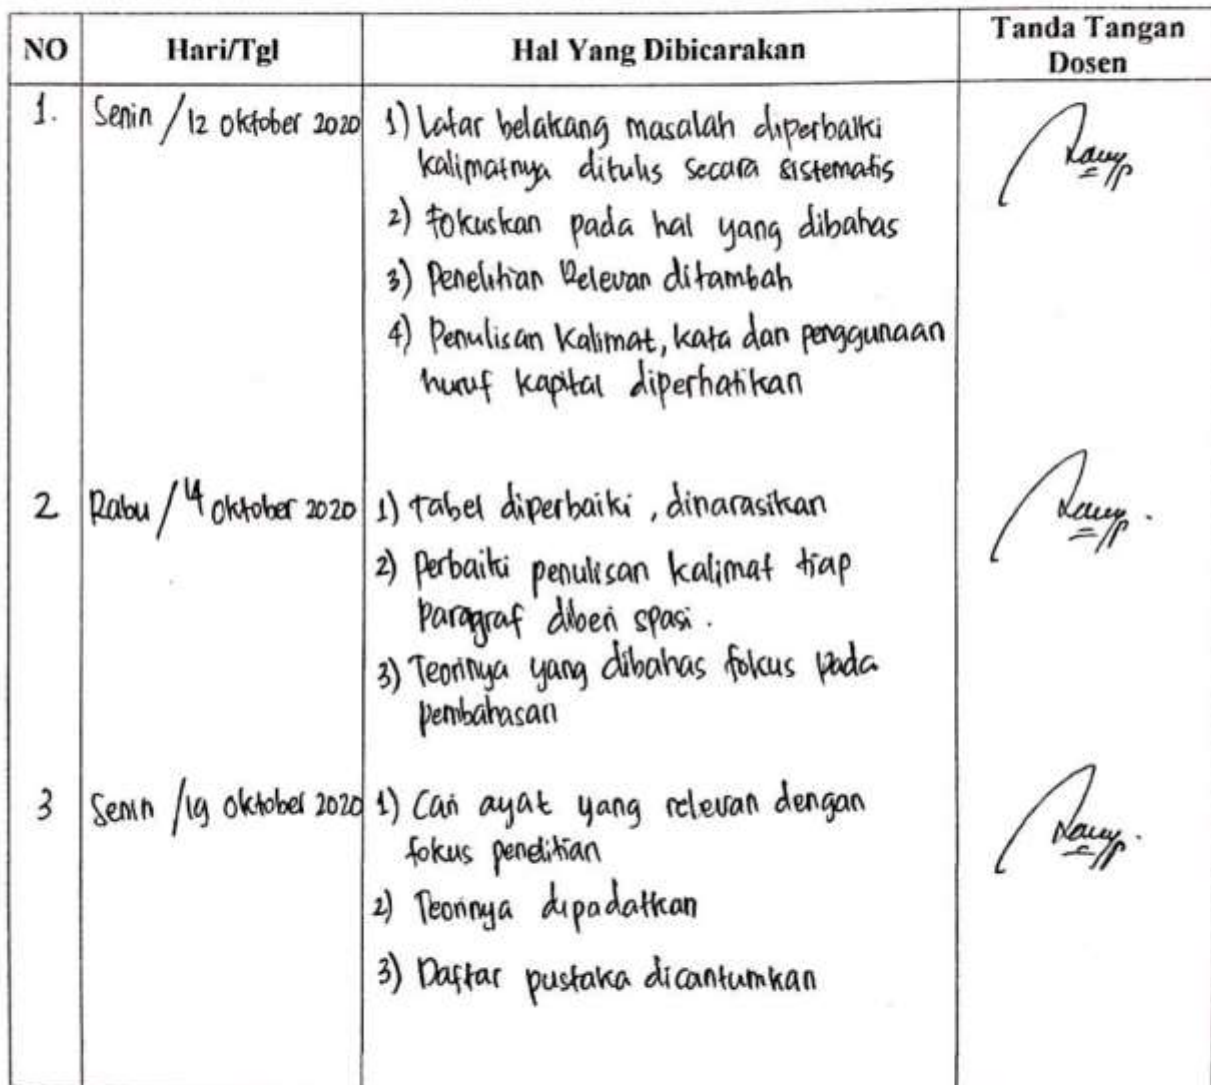 NO Hari/Tgl Hal Yang Dibicarakan Tanda Tangan Dosen
1. Senin / 12 Oktober 2020 1) Latar belakang masalah diperbaiki
kalimatnya ditulis secara sistematis
2) Fokuskan pada hal yang dibahas
3) Penelitian Relevan ditambah
4) Penulisan Kalimat, kata dan penggunaan
huruf kapital diperhatikan
2 Rabu / 14 Oktober 2020 1) Tabel diperbaiki, dinarasikan
2) Perbaiki penulisan kalimat tiap
Paragraf diberi spasi.
3) Teorinya yang dibahas fokus pada
pembahasan
3 Senin / 19 Oktober 2020 1) Cari ayat yang relevan dengan
fokus penelitian
2) Teorinya dipadatkan
3) Daftar pustaka dicantumkan